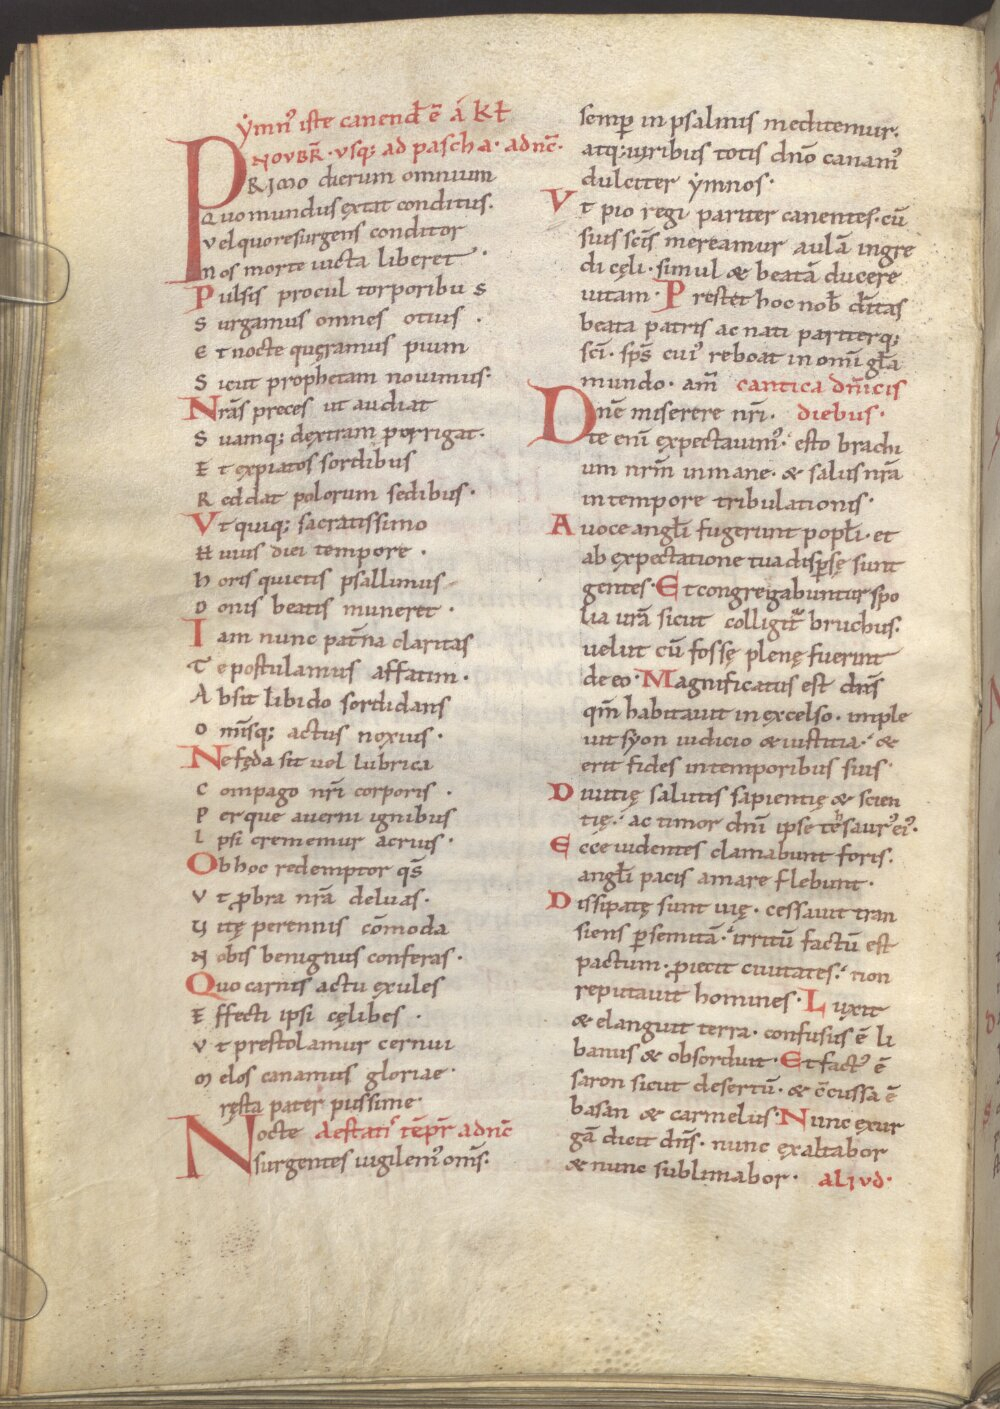 ẏmn⁹ iste canend̄ ē á kł
NOVBR̄ · vsq; ad pascha · ad nc̄ ·
PRIMO dierum omnium
Quo mundus ęxtat conditus.
Vel quo resurgens conditor
Nos morte victa liberet ·
Pulsis procul torporibus
Surgamus omnes otius ·
Et nocte quęramus pium
Sicut prophetam novimus·
Nrās preces ut audiat
Suamq; dęxtram porrigat·
Et expiatos sordibus
Reddat polorum sedibus·
Vt quiq; sacratissimo
Huius diei tempore ·
horis quietis psallimus
Donis beatis muneret ·
Iam nunc pat̄na claritas
Te postulamus affatim·
Absit libido sordidans
Om̄isq; actus noxius ·
Ne fęda sit vel lubrica
Compago nr̄i corporis ·
Per que averni ignibus
Ipsi crememur acrius ·
Ob hoc redemptor q̄s
Vt ꝓbra nrā deluas·
Vitę perennis cōmoda
Nobis benignus conferas·
Quo carnis actu ęxules
Effecti ipsi cęlibes ·
Vt prestolamur cernui
Melos canamus gloriae·
ręsta pater piissime·
Nocte Aestatiˢ tēpr̄ ad nc̄
Nsurgentes vigilem⁹ om̄s·
semp̄ in psalmis meditemur·
atq; viribus totis dn̄o canam⁹
dulciter ẏmnos·
Vt pio regi pariter canentes· cū
suis sc̄is mereamur aulā ingre
di cęli· simul & beatā ducere
vitam· Prestet hoc nob̄ d̄itas
beata patris ac nati pariterq;
sc̄i· sp̄s cui⁹ reboat in omi̅ gl̄a
mundo· am̄ cantica dn̄icis
Dne̅ miserere nr̄i· diebus·
te eni̅ ęxpectavim⁹· esto brachi
um nrm̄ in mane· & salus nrā
in tempore tribulationis·
A voce angl̄i fugerunt popl̄i· et
ab ęxpectatione tua disp̄sę sunt
gentes· Et congregabuntur spo
lia urā sicut colligit̄ bruchus·
velut cū fossę plenę fuerint
de eo· Magnificatus est dn̄s
qm̄ habitavit in ęxcelso· imple
vit syon iudicio & iustitia· &
erit fides in temporibus suis
Divitię salutis sapientię & scien
tię· ac timor dn̄i ipse tesaur⁹ ei⁹·
Ecce videntes clamabunt foris·
angl̄i pacis amare flebunt·
Dissipatę sunt vię· cessavit tran
siens p̄ semitā· irritū factū est
pactum· ꝓiecit civitates· non
reputavit homines· Luxit
& elanguit terra· confusus ē li
banus & obsorduit· Et fact⁹ ē
saron sicut desertū· & c̄cussa ē
basan & carmelus· Nunc ęxur
gā dicit dn̄s· nunc ęxaltabor
& nunc sublimabor· aliud·